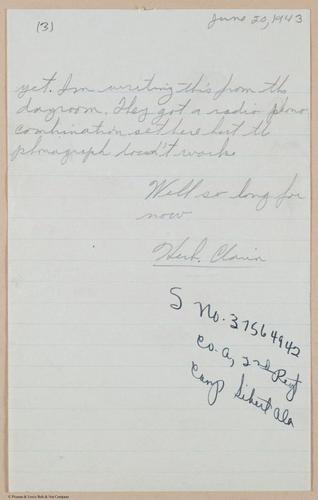 (3)
June 20, 1943
yet. I'm writing this from the
dayroom. They got a radio phono
combination set here but the
phonograph doesn't work.
Well so long for
now
Herb.
S No. 37564942
Co. A, 22nd Regt
Camp Sibert Ala